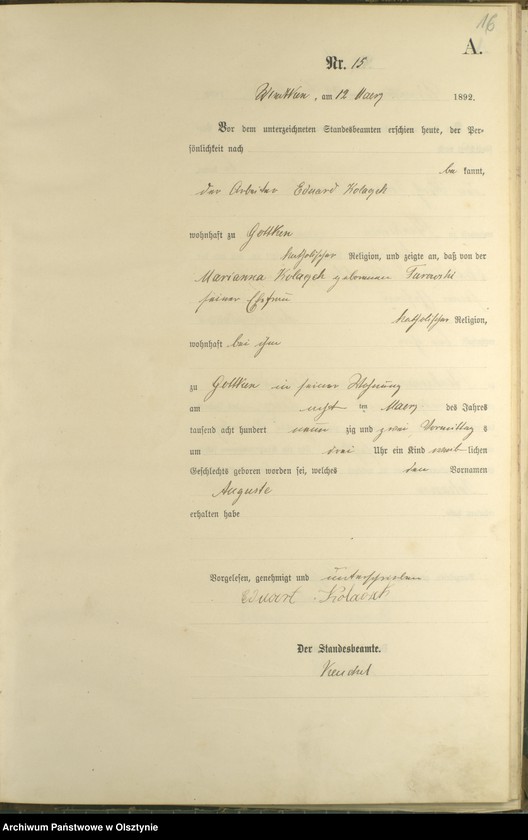 16
A.
Nr. 15
am 12 Maerz 1892.
Vor dem unterzeichneten Standesbeamten erschien heute, der Per-
sönlichkeit nach
be kannt,
der Arbeiter Eduard Kolaczek
wohnhaft zu Gottken
katholischer Religion, und zeigte an, daß von der
Marianna Kolaczek geborenen Turowski
seiner Ehefrau
katholischer Religion,
wohnhaft bei ihm
zu Gottken in seiner Wohnung
am acht ten Maerz des Jahres
tausend acht hundert neun zig und zwei Vormittag s
um drei Uhr ein Kind weib lichen
Geschlechts geboren worden sei, welches den Vornamen
Auguste
erhalten habe
Vorgelesen, genehmigt und unterschrieben
Eduart
Der Standesbeamte.
Archiwum Państwowe w Olsztynie